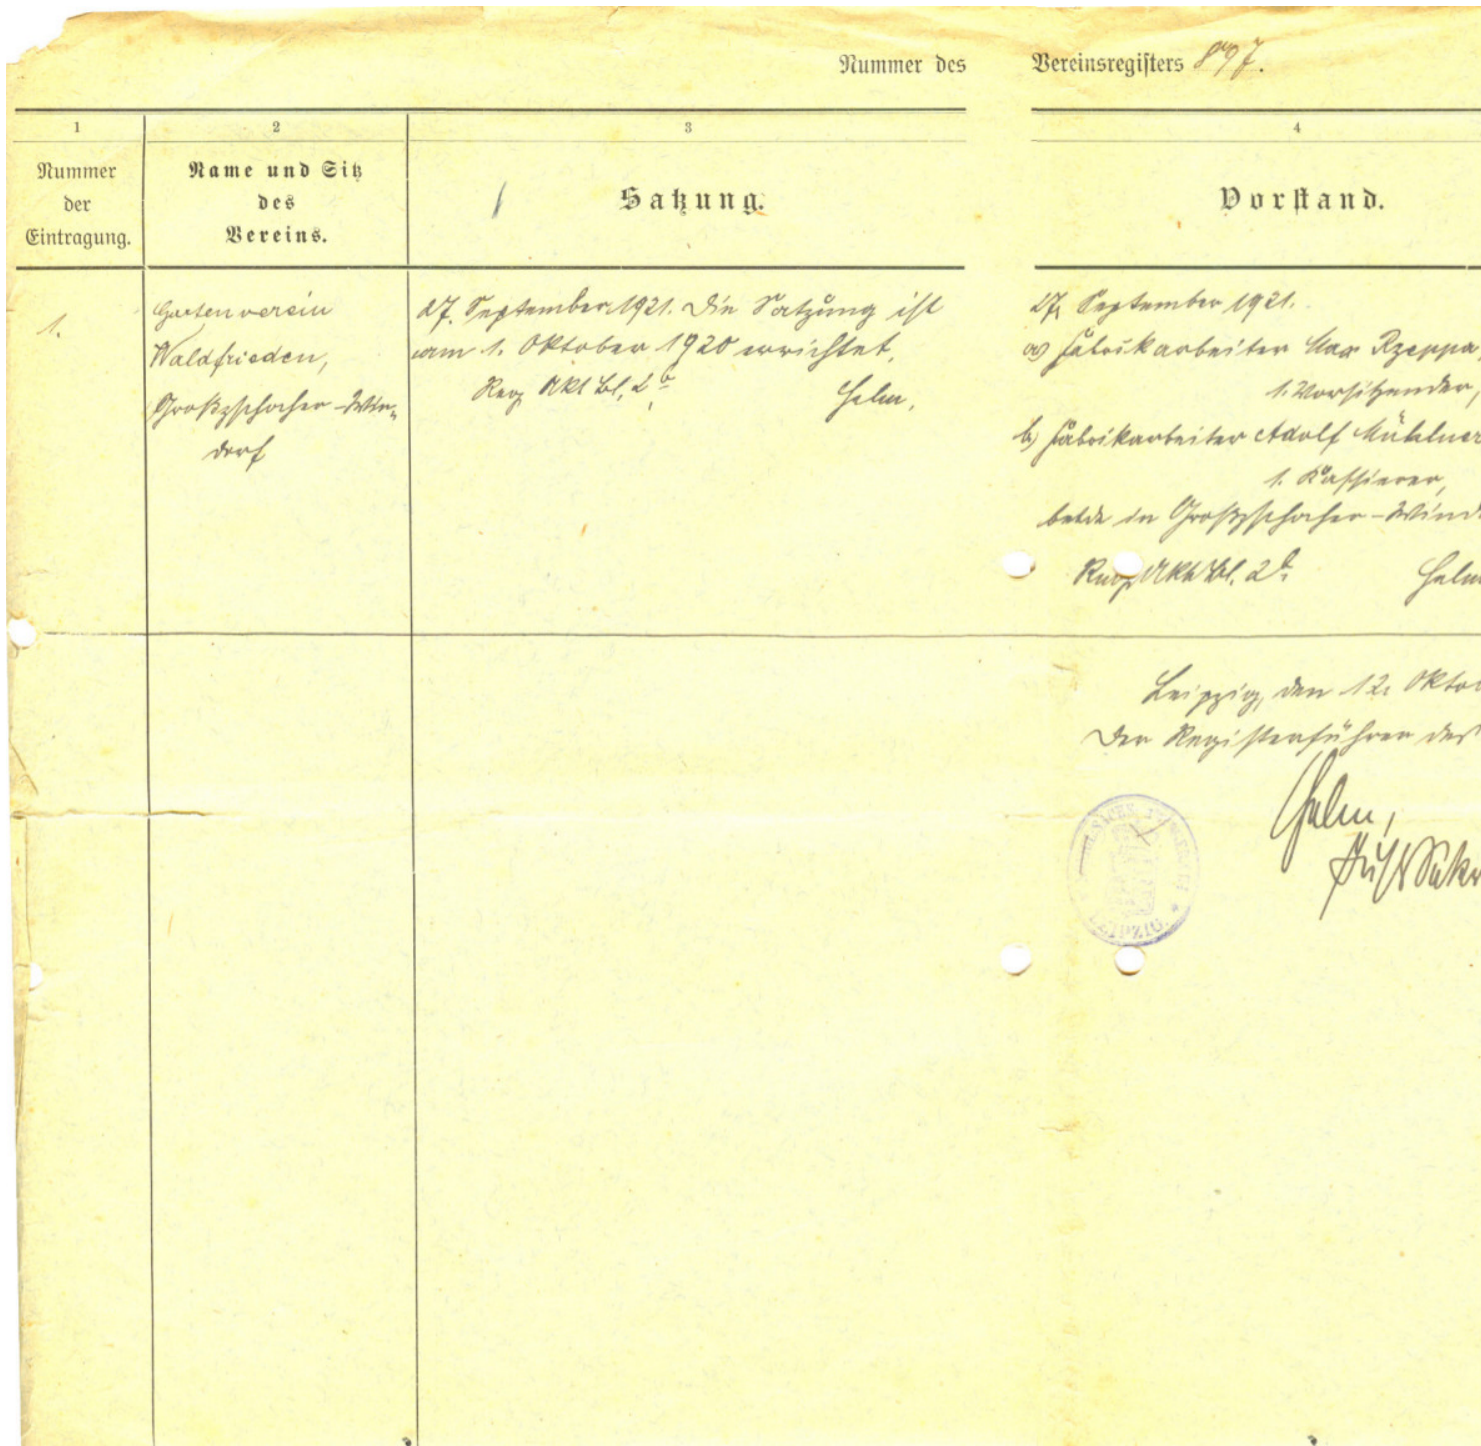 Nummer des Vereinsregisters 897.
1 2 3 4
Nummer der Eintragung.
Name und Sitz des Vereins.
Satzung.
Vorstand.
1.
Gartenverein
Waldfrieden,
Großzschocher-Win-
dorf
27. September 1921. Die Satzung ist
am 1. Oktober 1920 errichtet.
Reg Akt Bl. 2 Helm.
27. September 1921.
a) Fabrikarbeiter Max Rzeppa,
1. Vorsitzender,
b) Fabrikarbeiter Adolf Mühlner
1. Kassierer,
beide in Großzschocher-Wind
Reg Akt Bl. 2 Helm
Leipzig, den 12. Okto
Der Registerführer des
Helm,
LEIPZIG.